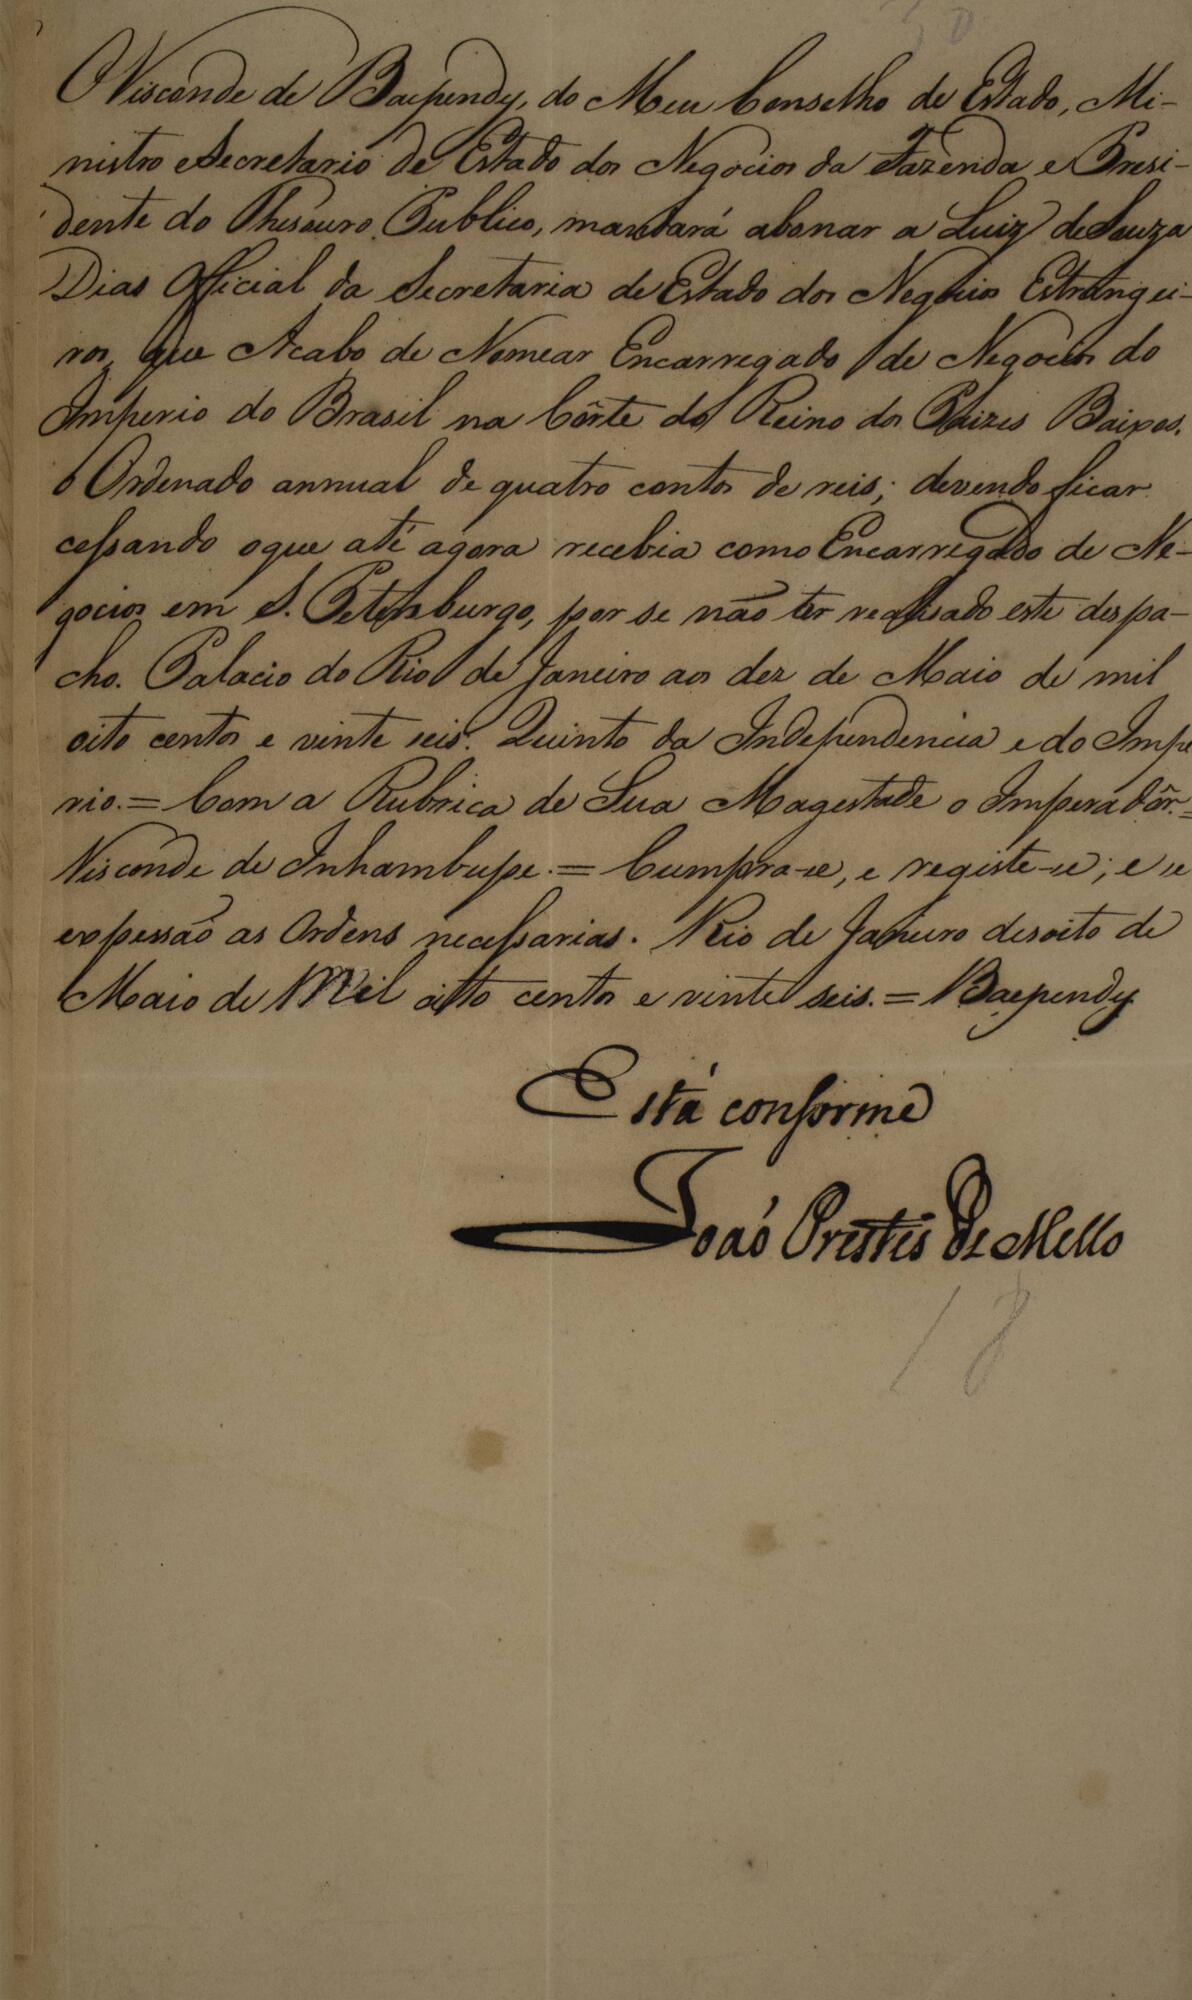 30
O Visconde de Baependy, do Meu Conselho de Estado, Mi-
nistro e Secretario de Estado dos Negocios da Fazenda e Presi-
dente do Thesouro Publico, mandará abonar a Luiz de Souza
Dias Official da Secretaria de Estado dos Negocios Estrangei-
ros, que Acabo de Nomear Encarregado de Negocios do
Imperio do Brasil na Côrte do Reino dos Paizes Baixos,
o Ordenado annual de quatro contos de reis; devendo ficar
cessando o que até agora recebia como Encarregado de Ne-
gocios em S. Petersburgo, por se não ter realisado este despa-
cho. Palacio do Rio de Janeiro aos dez de Maio de mil
oito centos e vinte seis. Quinto da Independencia e do Impe
rio. = Com a Rubrica de Sua Magestade o Imperadôr. =
Visconde de Inhambupe. = Cumpra-se, e registe-se; e se
expessão as Ordens necessarias. Rio de Janeiro desoito de
Maio de Mil oito centos e vinte seis. = Baependy
Está conforme
João Prestes de Mello
18